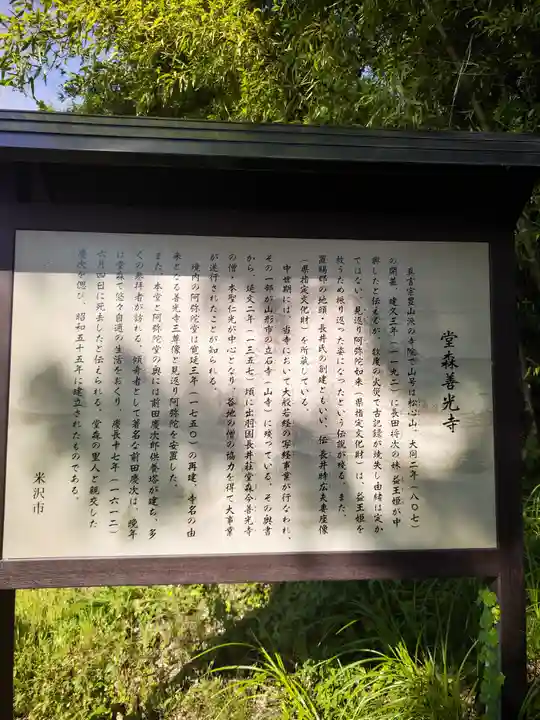 堂森善光寺
真言宗豊山派の寺院で山号は松心山、大同二年(八〇七)
の開基、建久三年(一一九二)に長田将次の妹 益王姫が中
興したと伝えるが、数度の火災で古記録が焼失し由緒は定か
ではない。見返り阿弥陀如来(県指定文化財)は、益王姫を
救うため振り返った姿になったという伝説が残る。また、
置賜郡の地頭、長井氏の創建ともいい、伝 長井時広夫妻座像
(県指定文化財)を所蔵している。
中世期には、当寺において大般若経の写経事業が行なわれ、
その一部が山形市の立石寺(山寺)に残っている。その奥書
から、延文二年(一三五七)頃に出羽国長井荘堂森今善光寺
の僧・本聖仁光が中心となり、各地の僧の協力を得て大事業
が遂行されたことが知られる。
境内の阿弥陀堂は寛延三年(一七五〇)の再建、寺名の由
来となる善光寺三尊像と見返り阿弥陀を安置した。
また、本堂と阿弥陀堂の奥には前田慶次郎供養塔が建ち、多
くの参拝者が訪れる。傾奇者として著名な前田慶次は、晩年
は堂森で悠々自適の生活をおくり、慶長十七年(一六一二)
六月四日に死去したと伝えられる。堂森の里人と親交した
慶次を偲び、昭和五十五年に建立されたものである。
米沢市